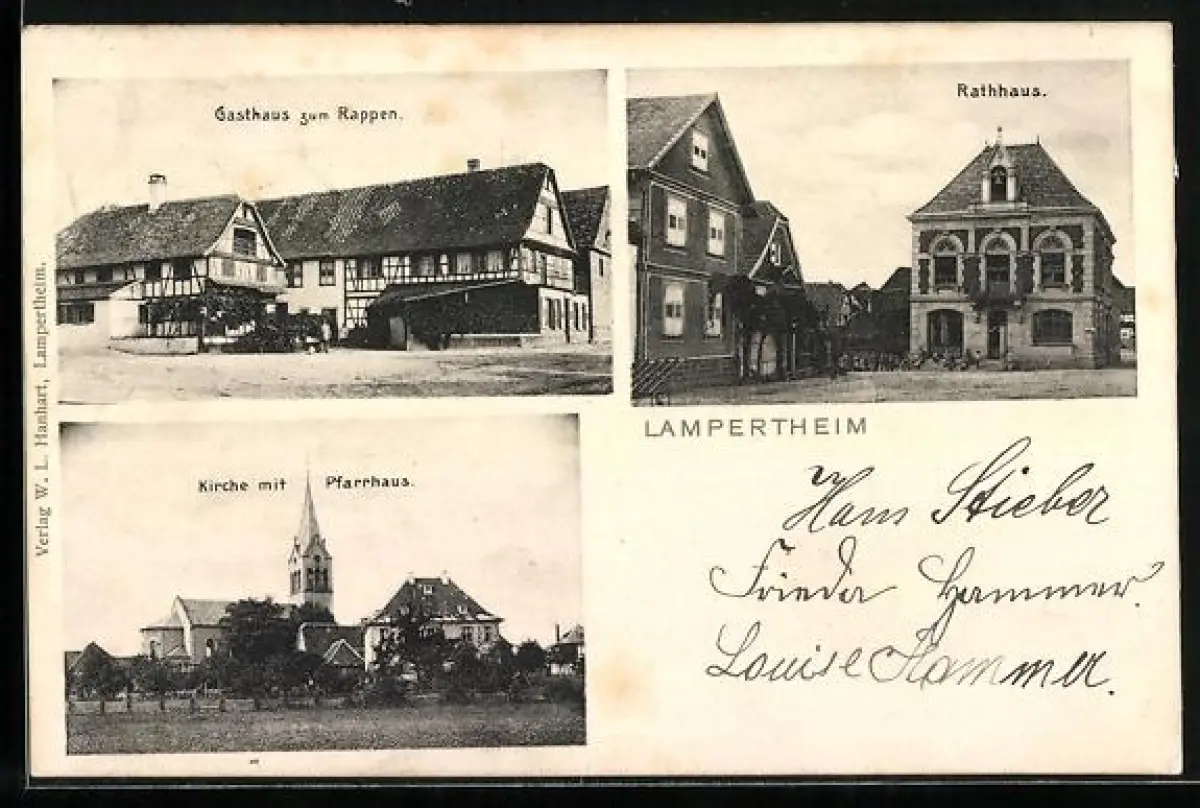 Gasthaus zum Rappen.
Rathhaus.
Verlag W. L. Hanhart, Lampertheim.
LAMPERTHEIM
Kirche mit Pfarrhaus.
Hans Stieber
Frieda Hammer.
Louise Hammer.